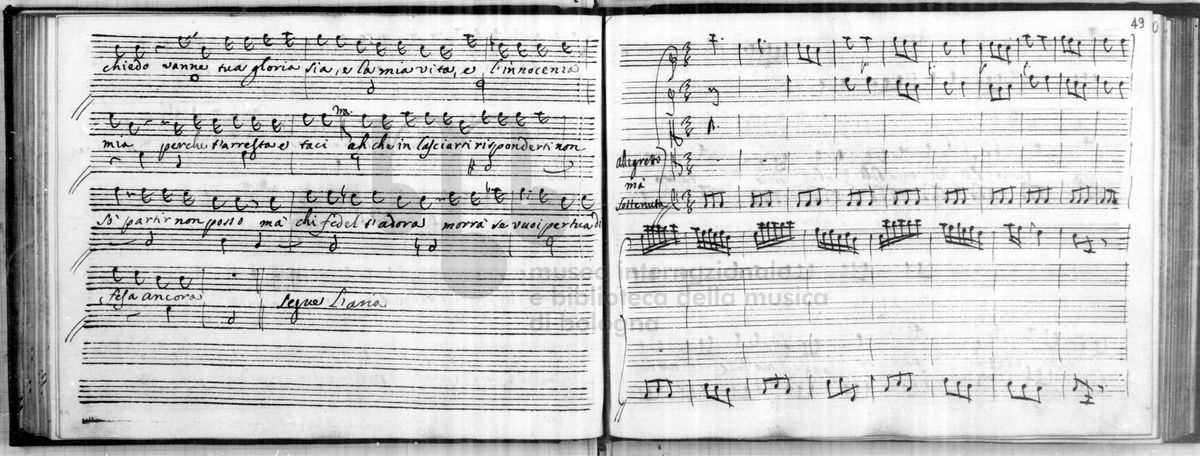 chiedo vanne tua gloria sia, e la mia vita, e l'innocenza
mia perche t'arresta e taci ah che in lasciarti risponderti non
sò partir non posso mà chi fedel t'adora morrà se vuoi per tua di
fesa ancora segue L'aria
49
allegretto
mà
sostenuto
museo internazionale
e biblioteca della musica
di bologna